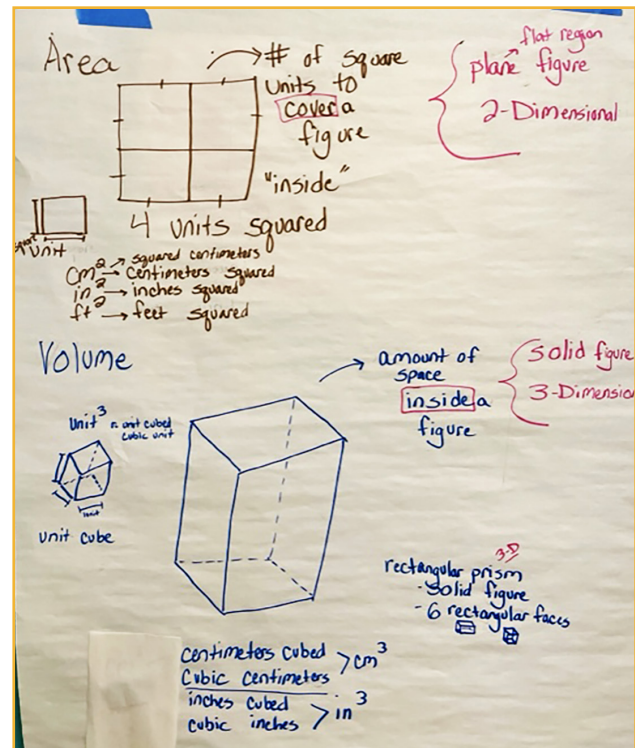 Area
# of square
units to
cover a
figure
"inside"
flat region
plane figure
2-Dimensional
4 units squared
unit
cm² → squared centimeters
→ centimeters squared
in² → inches squared
ft² → feet squared
Volume
amount of
space
inside a
figure
solid figure
3-Dimensio
Unit³
unit cubed
cubic unit
unit
unit cube
3-D
rectangular prism
- solid figure
- 6 rectangular faces
centimeters cubed
Cubic centimeters
> cm³
inches cubed
cubic inches
> in³